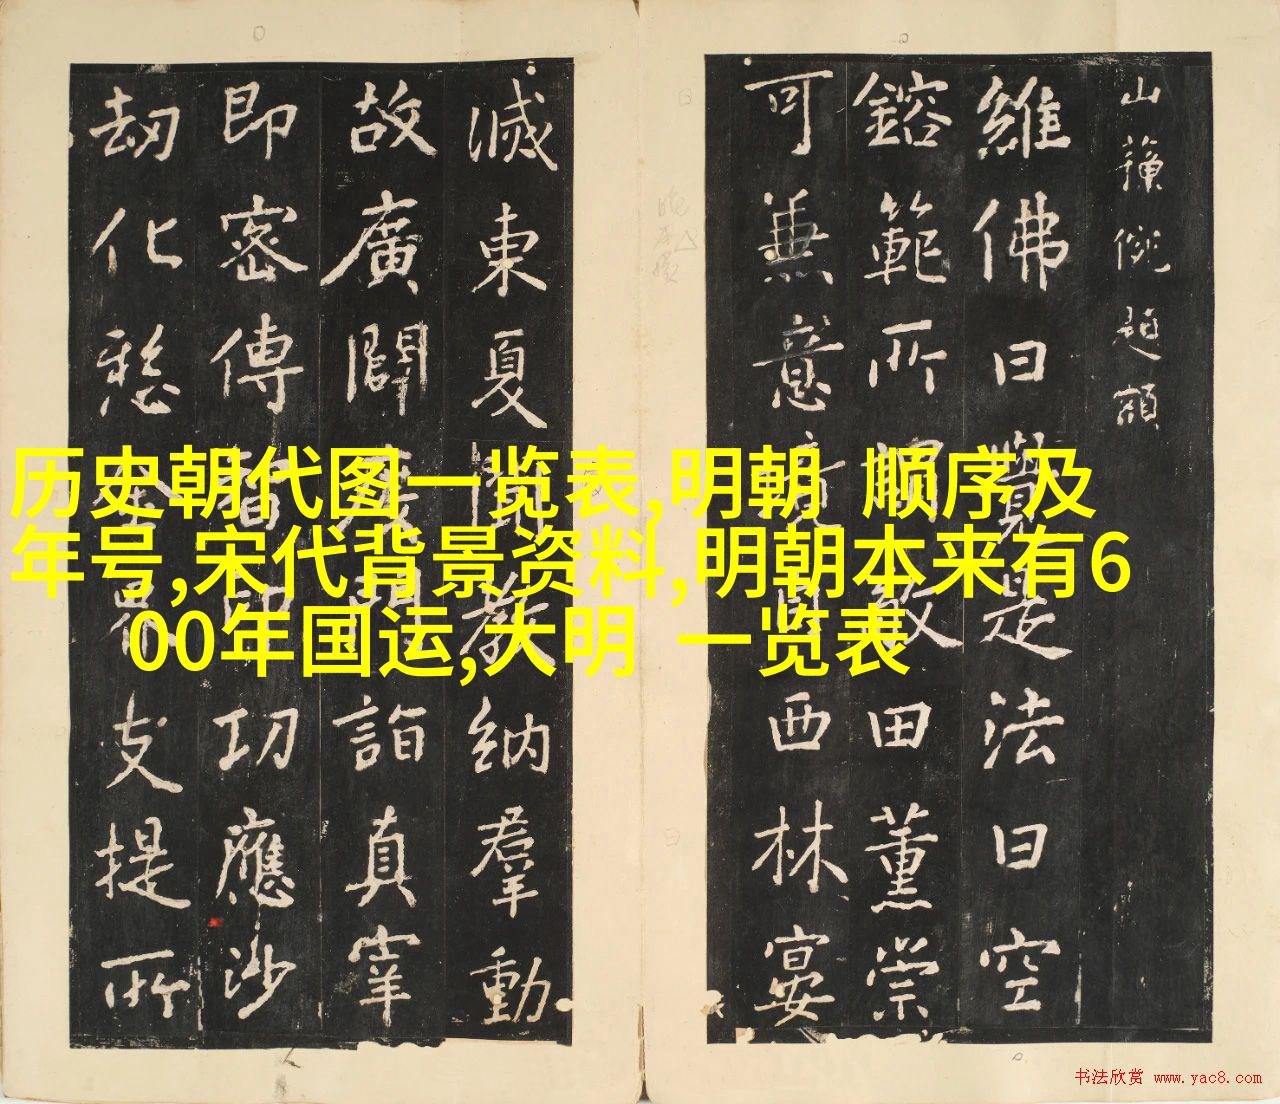 山蘓
題額
維佛曰覺是法曰空
鎔範所 啟田薰崇
可兼意竟 西林宴
滅東夏 教納羣動
故廣闢 詣真宰
即密傳 印功應沙
劫化愁 界支提所
历史朝代图一览表,明朝 顺序及
年号,宋代背景资料,明朝本来有6
00年国运,大明 一览表
书法欣赏 www.yac8.com